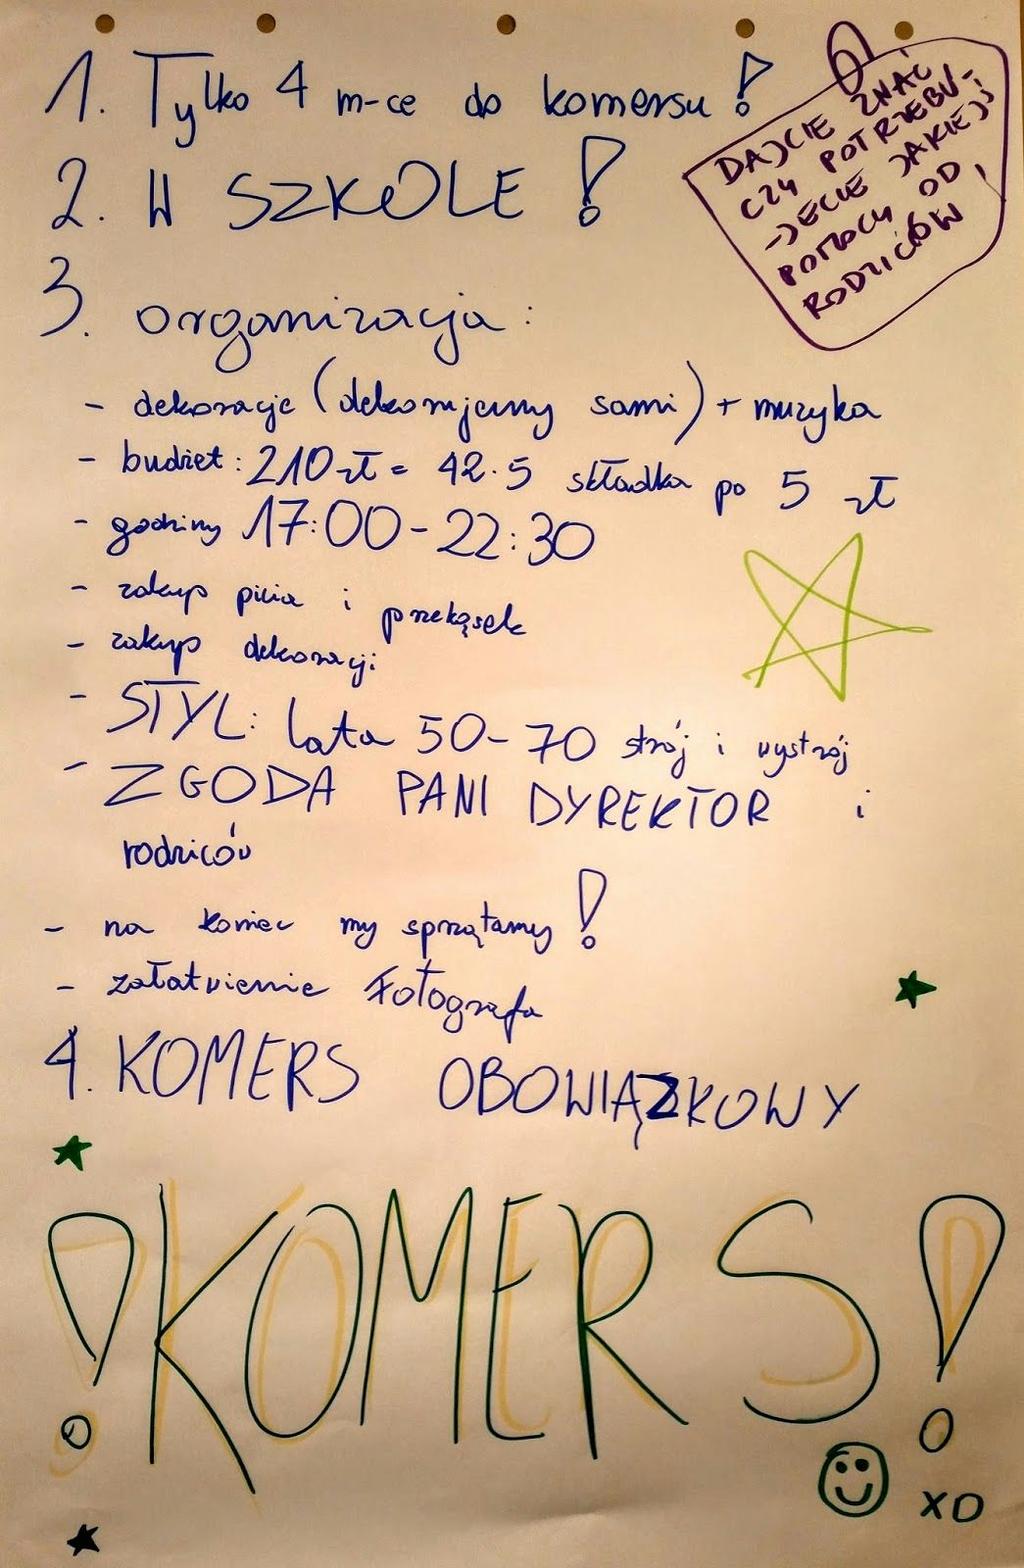 1. Tylko 4 m-ce do komersu!
2. W SZKOLE!
DAJCIE ZNAĆ
CZY POTRZEBU-
-JECIE JAKIEJŚ
POMOCY OD
RODZICÓW
3. organizacja:
- dekoracje (dekorujemy sami) + muzyka
- budżet: 210 zł = 42·5 składka po 5 zł
- godziny 17:00-22:30
- zakup picia i przekąsek
- zakup dekoracji
- STYL: lata 50-70 strój i wystrój
- ZGODA PANI DYREKTOR i
rodziców
- na koniec my sprzątamy!
- załatwienie fotografa
4. KOMERS OBOWIĄZKOWY
!KOMERS!
XD